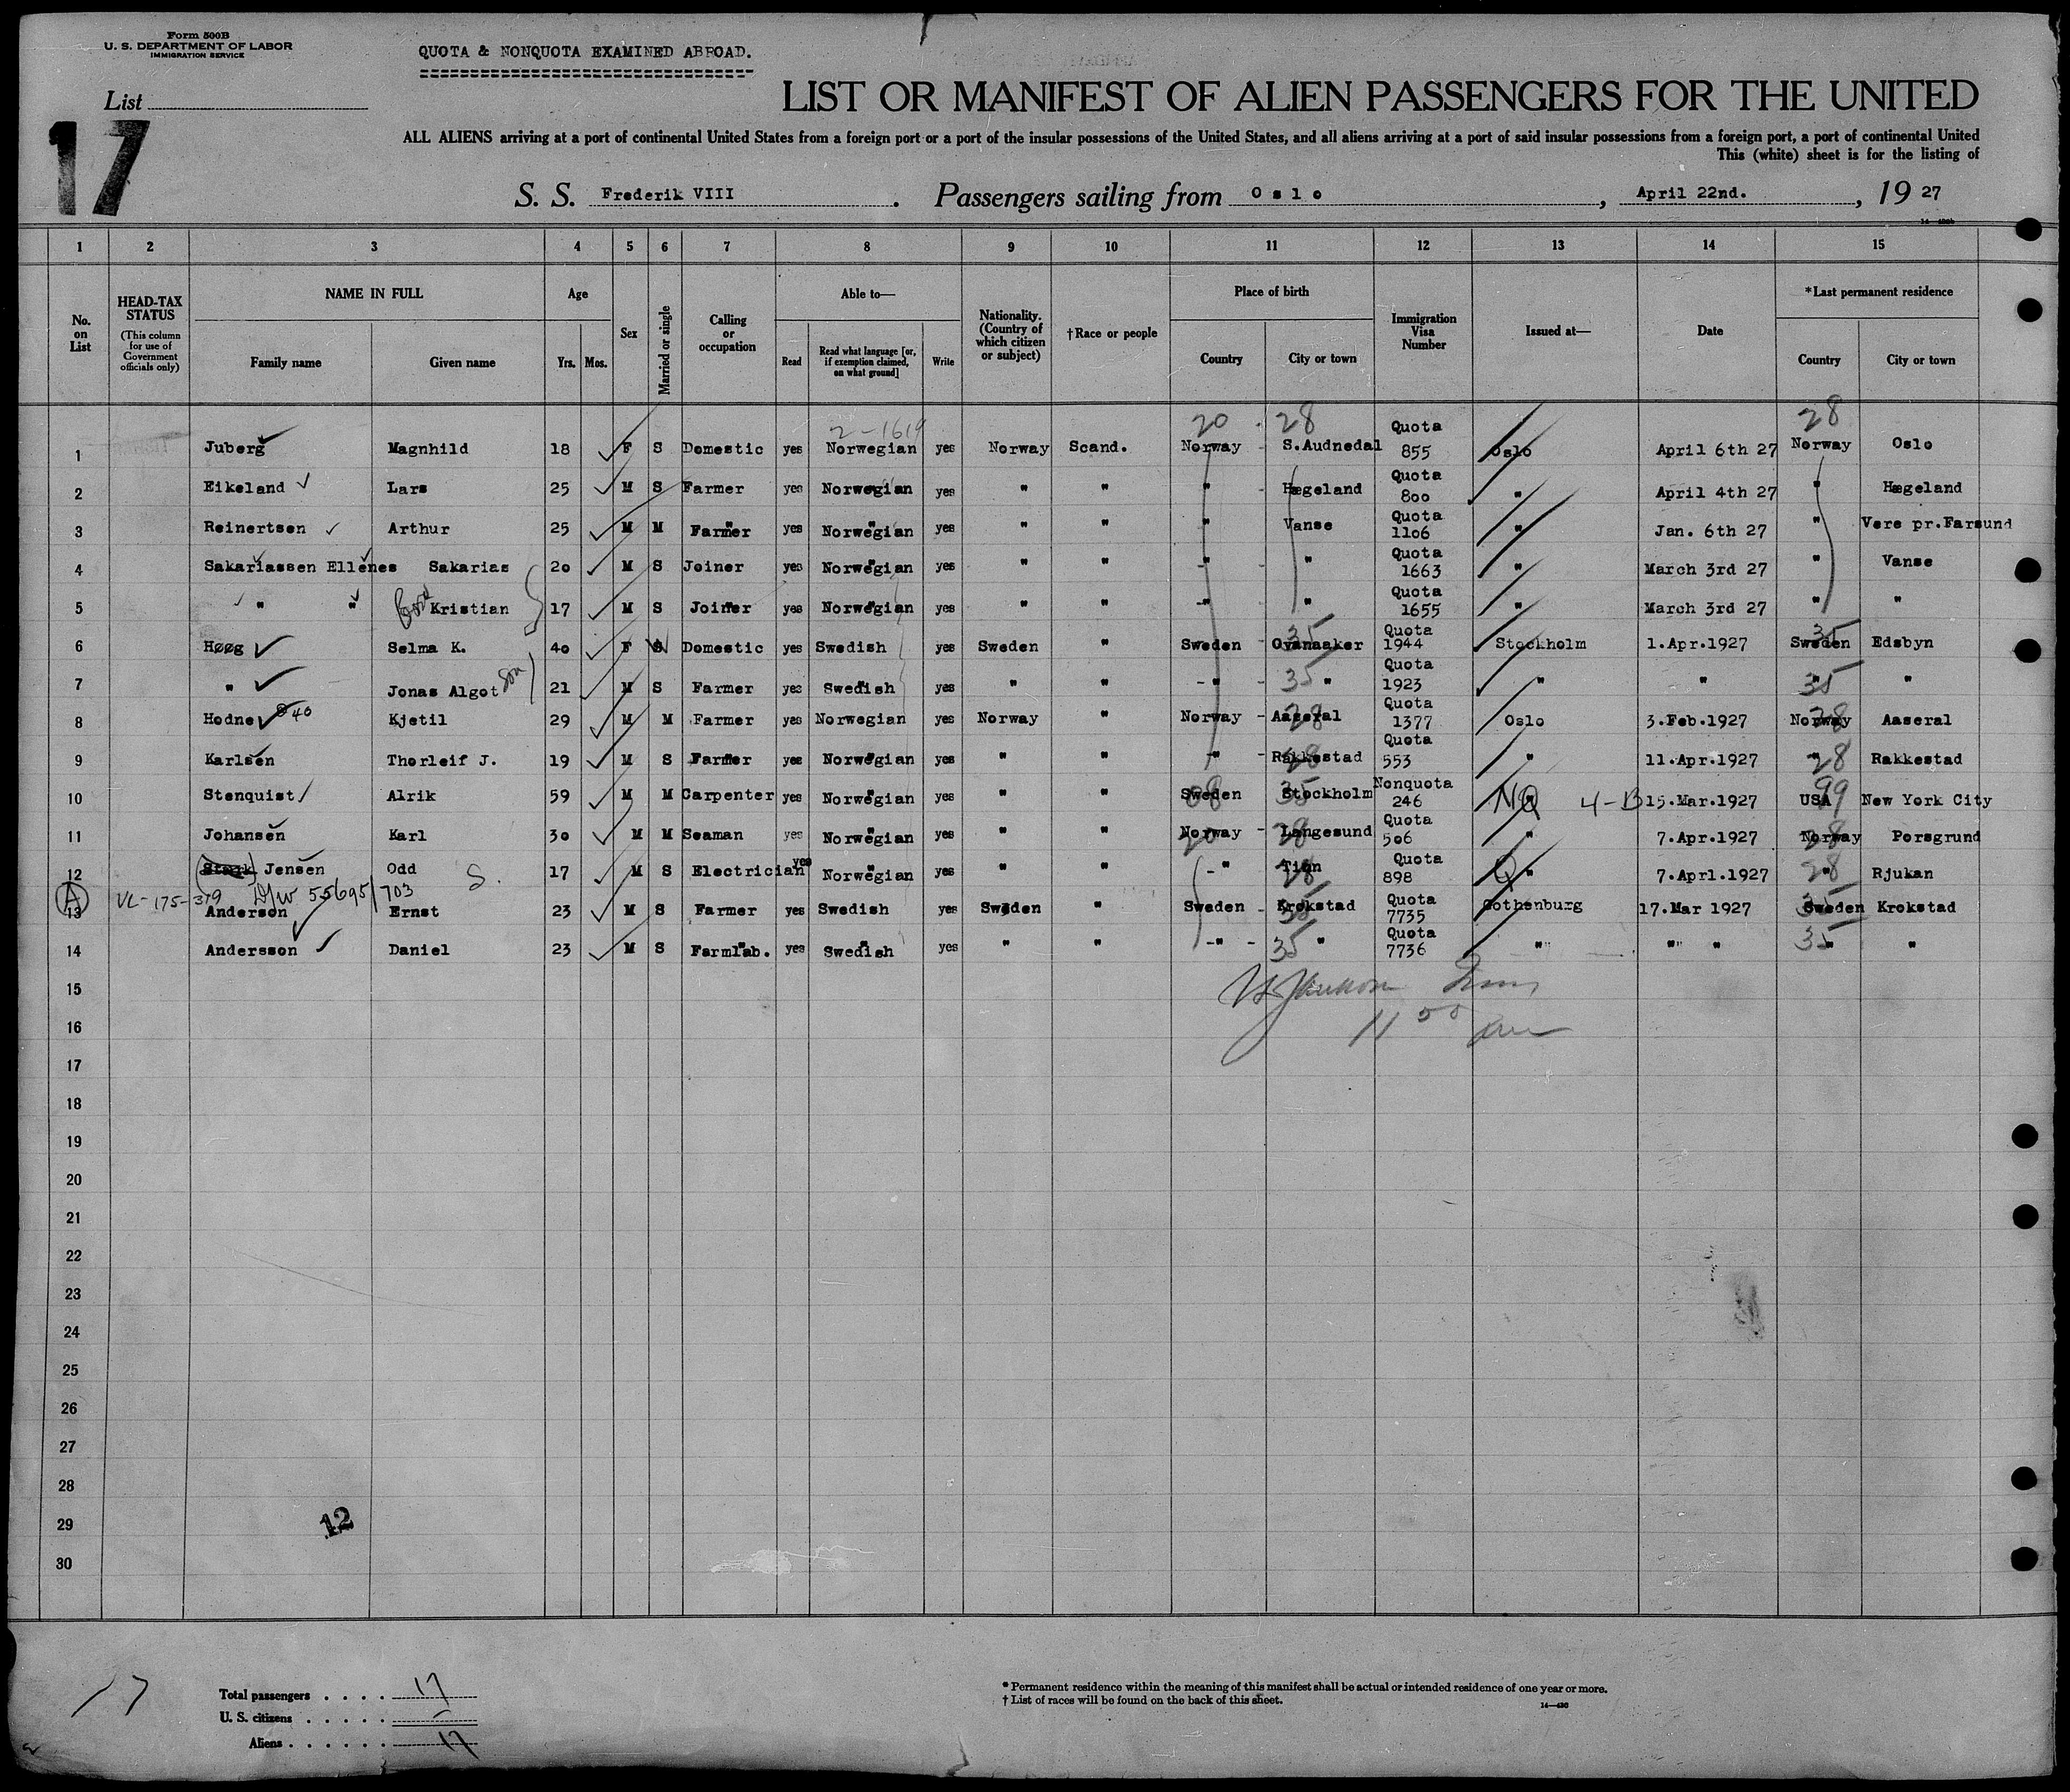 Form 500B
U. S. DEPARTMENT OF LABOR
IMMIGRATION SERVICE
QUOTA & NONQUOTA EXAMINED ABROAD.
List
17
LIST OR MANIFEST OF ALIEN PASSENGERS FOR THE UNITED
ALL ALIENS arriving at a port of continental United States from a foreign port or a port of the insular possessions of the United States, and all aliens arriving at a port of said insular possessions from a foreign port, a port of continental United
This (white) sheet is for the listing of
S. S. Frederik VIII. Passengers sailing from Oslo, April 22nd., 19 27
1 2 3 4 5 6 7 8 9 10 11 12 13 14 15
No. on List
HEAD-TAX STATUS (This column for use of Government officials only)
NAME IN FULL Family name Given name
Age Yrs. Mos.
Sex
Married or single
Calling or occupation
Able to— Read Read what language [or, if exemption claimed, on what ground] Write
Nationality. (Country of which citizen or subject)
†Race or people
Place of birth Country City or town
Immigration Visa Number
Issued at—
Date
*Last permanent residence Country City or town
2-1619 20 28 28
1 Juberg Magnhild 18 F S Domestic yes Norwegian yes Norway Scand. Norway S.Audnedal Quota 855 Oslo April 6th 27 Norway Oslo
2 Eikeland Lars 25 M S Farmer yes Norwegian yes " " " Hægeland Quota 800 " April 4th 27 " Hægeland
3 Reinertsen Arthur 25 M M Farmer yes Norwegian yes " " " Vanse Quota 1106 " Jan. 6th 27 " Vere pr.Farsund
4 Sakariassen Ellenes Sakarias 20 M S Joiner yes Norwegian yes " " " " Quota 1663 " March 3rd 27 " Vanse
5 " " Kristian 17 M S Joiner yes Norwegian yes " " " " Quota 1655 " March 3rd 27 " "
6 Høøg Selma K. 40 F S Domestic yes Swedish yes Sweden " Sweden Ovanaaker 35 Quota 1944 Stockholm 1.Apr.1927 Sweden 35 Edsbyn
7 " Jonas Algot son 21 M S Farmer yes Swedish yes " " " 35 " Quota 1923 " " 35 " "
8 Hodne Kjetil 29 M M Farmer yes Norwegian yes Norway " Norway Aaseral 28 Quota 1377 Oslo 3.Feb.1927 Norway 28 Aaseral
9 Karlsen Thorleif J. 19 M S Farmer yes Norwegian yes " " " Rakkestad 28 Quota 553 " 11.Apr.1927 " 28 Rakkestad
10 Stenquist Alrik 59 M M Carpenter yes Norwegian yes " " Sweden Stockholm 35 Nonquota 246 " NQ 4-B 15.Mar.1927 USA 99 New York City
11 Johansen Karl 30 M M Seaman yes Norwegian yes " " Norway 20 Langesund 28 Quota 506 " 7.Apr.1927 Norway 28 Porsgrund
12 Jensen Odd S. 17 M S Electrician yes Norwegian yes " " " Tinn 28 Quota 898 " 7.Aprl.1927 " 28 Rjukan
A VL-175-319 55695/703
13 Anderson Ernst 23 M S Farmer yes Swedish yes Sweden " Sweden Krokstad 35 Quota 7735 Gothenburg 17.Mar 1927 Sweden 35 Krokstad
14 Andersson Daniel 23 M S Farmlab. yes Swedish yes " " " 35 " Quota 7736 " " " 35 " "
15
16 11 50 am
17
18
19
20
21
22
23
24
25
26
27
28
29 12
30
17
Total passengers . . . . 17
U. S. citizens . . . . . –
Aliens . . . . . . 17
* Permanent residence within the meaning of this manifest shall be actual or intended residence of one year or more.
† List of races will be found on the back of this sheet.
14—436